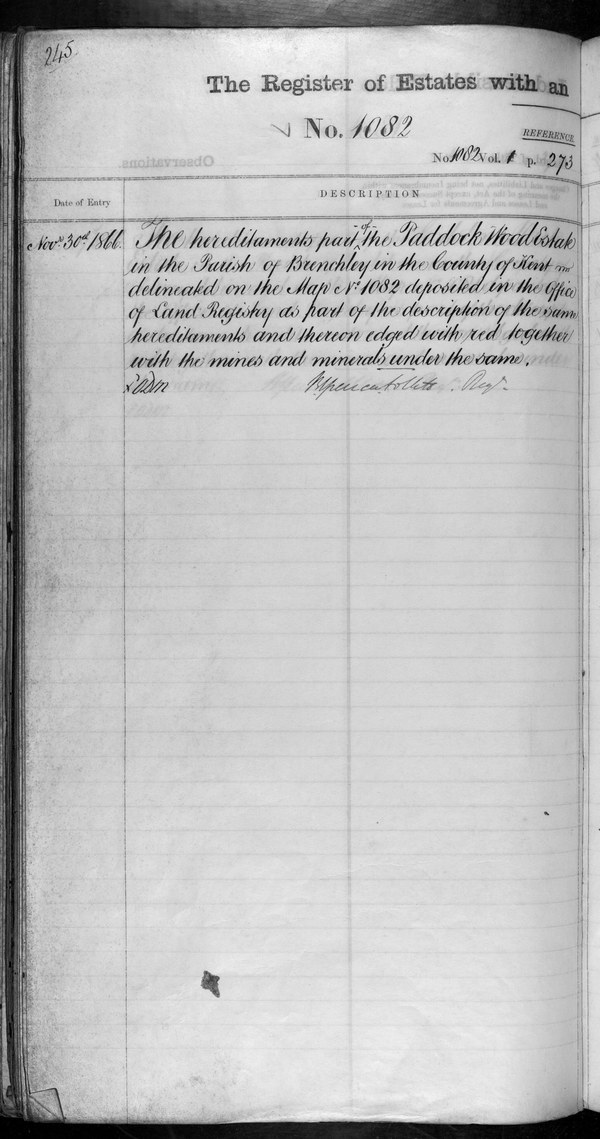 245
The Register of Estates with an
No. 1082
REFERENCE
No 1082 Vol. 1 p. 273
Observations.
Date of Entry
DESCRIPTION
Novr 30th 1866. The hereditaments part of the Paddock Wood Estate
in the Parish of Brenchley in the County of Kent
delineated on the Map No 1082 deposited in the Office
of Land Registry as part of the description of the same
hereditaments and thereon edged with red together
with the mines and minerals under the same.
Regr